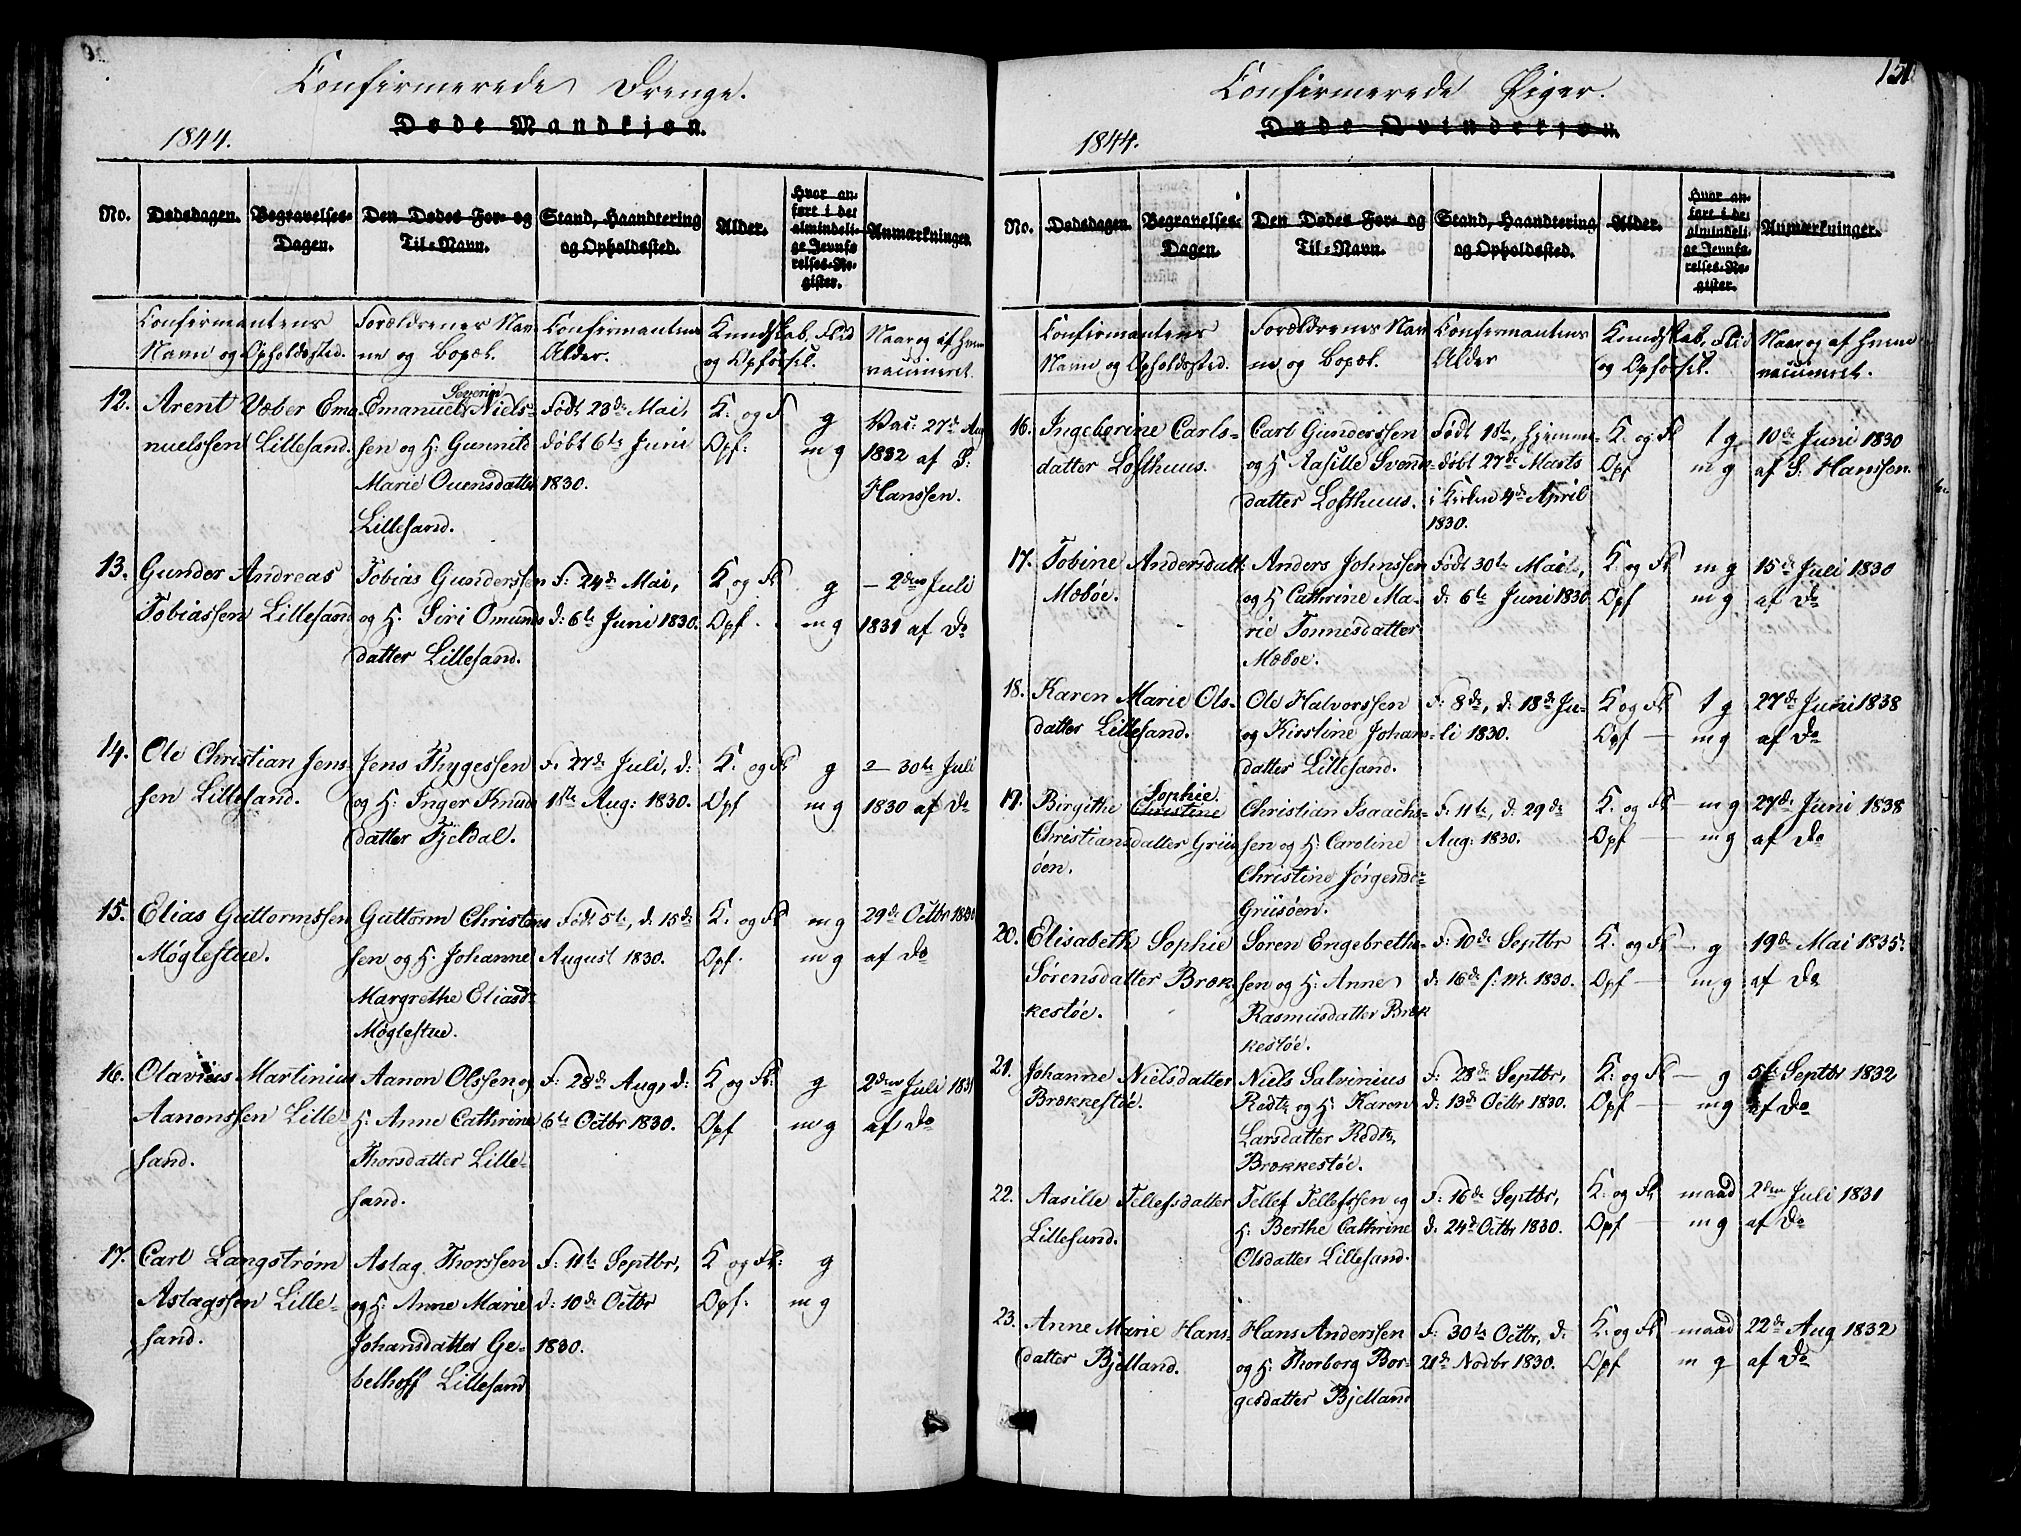 Confirmerede Drenge.
Døde Mandkjøn.
1844.
No.
Dødsdagen.
Begravelses-
Dagen.
Den Dødes For- og
Til-Navn.
Stand, Haandtering
og Opholdssted.
Alder.
Hvor an-
ført i det
almindeli-
ge Jevnfø-
relses-Re-
gister.
Anmærkninger.
Confirmantens
Navn og Opholdssted.
Forældrenes Nav-
ne og Bopæl.
Confirmantens
Alder.
Kundskab, Flid
og Opførsel.
Naar og af hvem
vaccineret.
12. Arent Væber Ema-
nuelssen Lillesand.
Emanuel Severin Niels-
sen og H: Gunnild
Marie Ouensdatter
Lillesand.
Født 23de Mai,
døbt 6te Juni
1830.
K. og F g
Opf: m g
Vac: 27de Aug
1832 af S:
Hanssen.
13. Gunder Andreas
Tobiassen Lillesand
Tobias Gunderssen
og H: Siri Omunds
datter Lillesand.
F: 24de Mai,
d: 6te Juni 1830.
K og Fl g
Opf. m g
— 2den Juli
1831 af Do
14. Ole Christian Jens-
sen Lillesand.
Jens Thygessen
og H: Inger Knuds
datter Tjeldal.
F. 27de Juli, d:
1ste Aug: 1830.
K. og Fl g
Opf m g
2 — 30te Juli
1830 af Do
15. Elias Guttormssen
Møglestue.
Guttorm Christens
sen og H. Johanne
Margrethe Eliasd:
Møglestue.
Født 5te, d. 15de
August 1830.
K. og Fl m g
Opf. m g
29de Octbr 1830
af Do
16. Olavius Martinius
Aanonssen Lille-
sand.
Aanon Olssen og
H. Anne Cathrine
Thorsdatter Lille-
sand.
F: 28de Aug, d:
6te Octbr 1830.
K og Fl: g
Opf m g
2den Juli 1831
af Do
17. Carl Langstrøm
Aslagssen Lille-
sand.
Aslag Thorssen
og H. Anne Marie
Johansdatter Ge-
belhoff Lillesand
F: 11te Septbr,
d: 10de Octbr
1830.
K og Fl: g
Opf. m g
151.
Confirmerede Piger.
Døde Qvindekjøn.
1844.
No.
Dødsdagen.
Begravelses-
Dagen.
Den Dødes For- og
Til-Navn.
Stand, Haandtering
og Opholdssted.
Alder.
Hvor an-
ført i de
almindeli-
ge Jevnfø-
relses-Re-
gister.
Anmærkninger.
Confirmantens
Navn og Opholdssted.
Forældrenes Nav-
ne og Bopæl.
Confirmantens
Alder
Kundskab, Flid
og Opførsel.
Naar og af hvem
vaccineret.
16. Ingeborine Carls-
datter Lofthuus.
Carl Gunderssen
og H Aasille Svenn-
datter Lofthuus.
Født 1ste, hjemme-
døbt 27de Marts
i Kirken 4de April
1830.
K. og Fl t g
Opf m g
10de Juni 1830
af S: Hanssen.
17. Tobine Andersdatt
Mæbøe.
Anders Johnssen
og H Cathrine Ma-
rie Tonnesdatter
Mæboe.
Født 30te Mai,
d: 6te Juni 1830
K. og Fl m g
Opf m g
15de Juli 1830
af Do
18. Karen Marie Ols-
datter Lillesand.
Ole Halvorssen
og Kirstine Johans-
datter Lillesand.
F: 8de, d: 18de Ju-
li 1830.
K og Fl t g
Opf — m g
27de Juni 1838
af Do
19. Birgithe Christine Sophie.
Christiansdatter Griis
øen.
Christian Isaachs-
sen og H: Caroline
Christine Jørgensd:
Griisøen.
F: 11te, d: 29de
Aug: 1830.
K. og Fl — m g
Opf — m g
27de Juni 1838
af Do
20. Elisabeth Sophie
Sørensdatter Bræk-
kestøe.
Soren Engebreths-
sen og H: Anne
Rasmusdatter Bræk
kestøe.
F: 10de Septbr
d: 16de s: M: 1830.
K. og Fl — g
Opf — m g
19de Mai 1835
af Do
21. Johanne Nielsdatter
Brækkestøe.
Niels Salvinius
Rødtz og H: Karen
Larsdatter Rødtz,
Brækkestøe.
F: 28de Septbr,
d: 13de Octbr 1830.
K: og Fl — g
Opf — m g
5te Septbr 1832
af Do
22. Aasille Tellefsdatter
Lillesand.
Tellef Tellefssen og
H: Berthe Cathrine
Olsdatter Lillesand.
F: 16de Septbr,
d. 24de Octbr 1830.
K: og Fl — maad
Opf — m g
2den Juli 1831
af Do
23. Anne Marie Hans-
datter Bjelland.
Hans Anderssen
og H: Thorborg Bor-
gesdatter Bjelland
F: 30te Octbr, d:
21de Novbr 1830.
K: og Fl — maad
Opf m g
22de Aug 1832
af Do